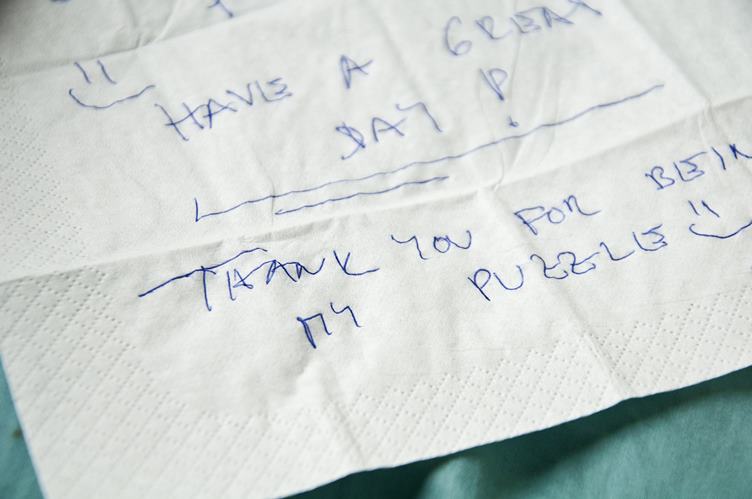 HAVE A GREAT
DAY!
THANK YOU FOR BEIN
MY PUZZLE